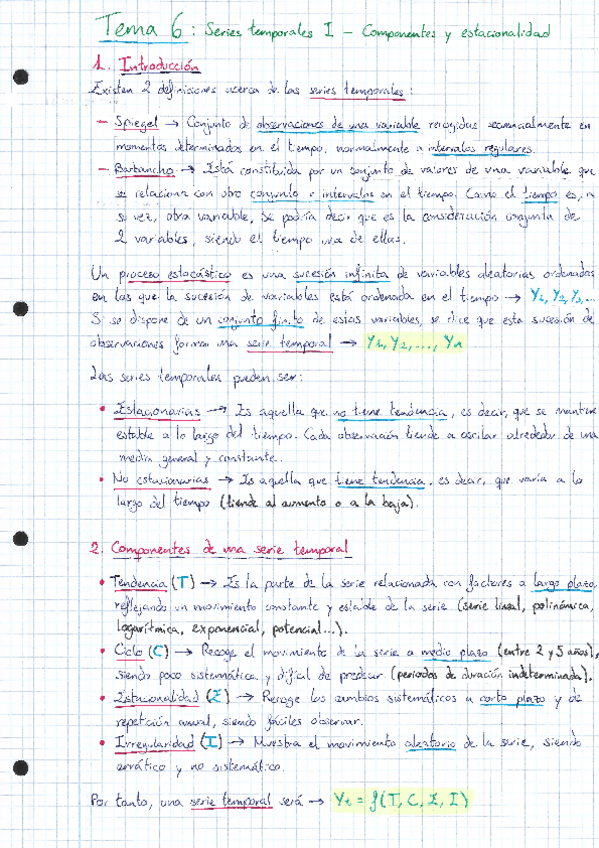 Tema 6: Series temporales I – Componentes y estacionalidad
1. Introducción
Existen 2 definiciones acerca de las series temporales:
– Spiegel → Conjunto de observaciones de una variable recogidas secuencialmente en
momentos determinados en el tiempo, normalmente a intervalos regulares.
– Barbancho → Está constituida por un conjunto de valores de una variable que
se relaciona con otro conjunto o intervalos en el tiempo. Como el tiempo es, a
su vez, otra variable, se podría decir que es la consideración conjunta de
2 variables, siendo el tiempo una de ellas.
Un proceso estocástico es una sucesión infinita de variables aleatorias ordenadas
en las que la sucesión de variables está ordenada en el tiempo → Y1, Y2, Y3,...
Si se dispone de un conjunto finito de estas variables, se dice que esta sucesión de
observaciones forman una serie temporal → Y1, Y2, ..., Yn
Las series temporales pueden ser:
• Estacionarias → Es aquella que no tiene tendencia, es decir, que se mantiene
estable a lo largo del tiempo. Cada observación tiende a oscilar alrededor de una
media general y constante.
• No estacionarias → Es aquella que tiene tendencia, es decir, que varía a lo
largo del tiempo (tiende al aumento o a la baja).
2. Componentes de una serie temporal
• Tendencia (T) → Es la parte de la serie relacionada con factores a largo plazo,
reflejando un movimiento constante y estable de la serie (serie lineal, polinómica,
logarítmica, exponencial, potencial...).
• Ciclo (C) → Recoge el movimiento de la serie a medio plazo (entre 2 y 5 años),
siendo poco sistemática y difícil de predecir (periodos de duración indeterminada).
• Estacionalidad (E) → Recoge los cambios sistemáticos a corto plazo y de
repetición anual, siendo fáciles observar.
• Irregularidad (I) → Muestra el movimiento aleatorio de la serie, siendo
errático y no sistemático.
Por tanto, una serie temporal será → Yt = f(T, C, E, I)